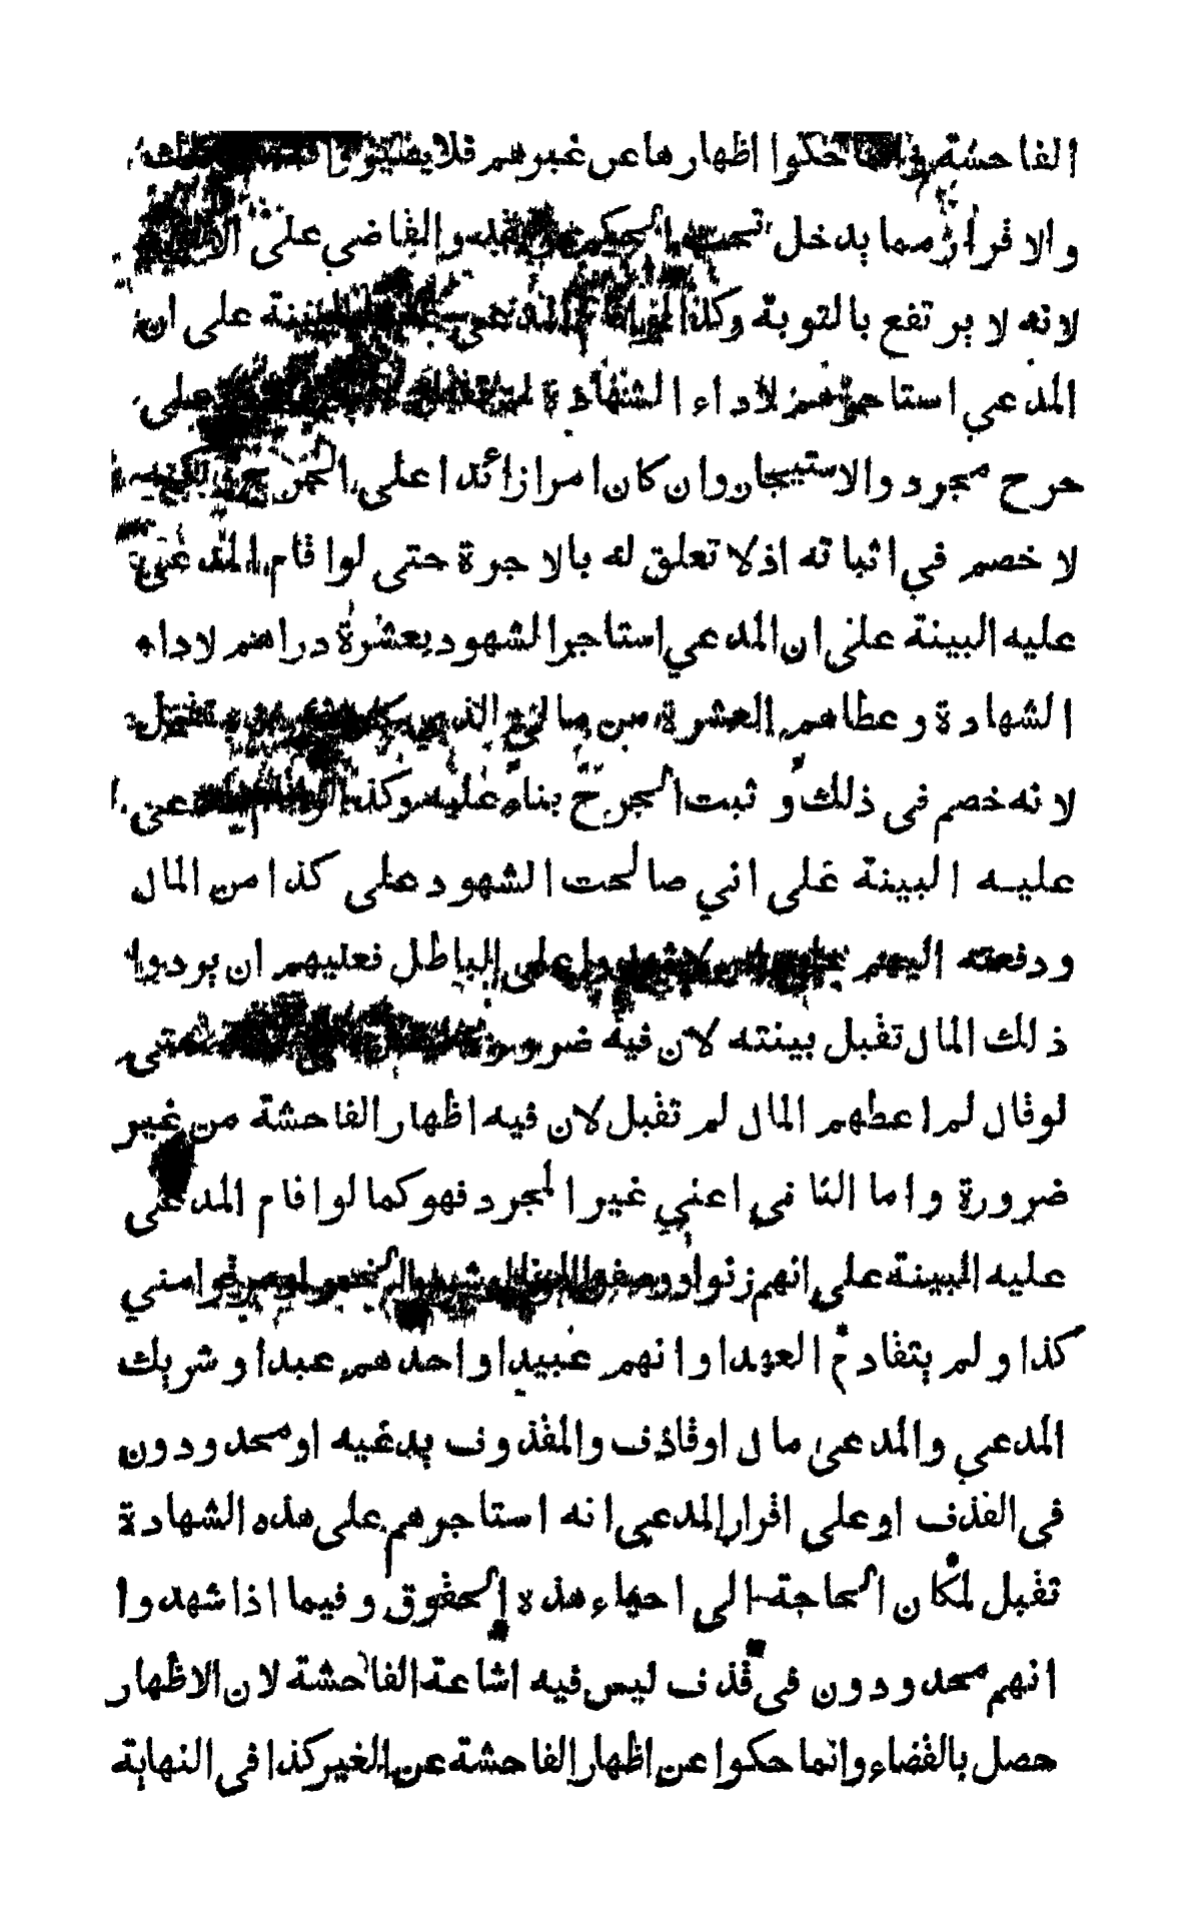 الفاحشة وانما حكوا اظهارها عن غيرهم فلا يصيروا
والاقرار مما يدخل تحت الحكم والقاضي على
لانه لا يرتفع بالتوبة وكذا لو اقام المدعى عليه البينة على ان
المدعي استاجرهم لاداء الشهادة لم تقبل على
جرح مجرد والاستيجار وان كان امرا زائدا على الجرح
لا خصم في اثباته اذ لا تعلق له بالاجرة حتى لو اقام المدعى
عليه البينة على ان المدعي استاجر الشهود بعشرة دراهم لاداء
الشهادة وعطاهم العشرة من مالي الذي تقبل
لانه خصم فى ذلك و ثبت الجرح بناء عليه وكذا
عليه البينة على اني صالحت الشهود على كذا من المال
ودفعته اليهم على ان لا يشهدوا على الباطل فعليهم ان يردوا
ذلك المال تقبل بينته لان فيه ضرورة حتى
لو قال لم اعطهم المال لم تقبل لان فيه اظهار الفاحشة من غير
ضرورة واما الثاني اعني غير المجرد فهو كما لو اقام المدعى
عليه البينة على انهم زنوا ووصفوا الزنا او شربوا الخمر او سرقوا مني
كذا ولم يتقادم العهد او انهم عبيد او احدهم عبد او شريك
المدعي والمدعى مال او قاذف والمقذوف يدعيه او محدودون
فى القذف او على اقرار المدعي انه استاجرهم على هذه الشهادة
تقبل لمكان الحاجة الى احياء هذه الحقوق وفيما اذا شهدوا
انهم محدودون فى قذف ليس فيه اشاعة الفاحشة لان الاظهار
حصل بالقضاء وانما حكوا عن اظهار الفاحشة عن الغير كذا فى النهاية